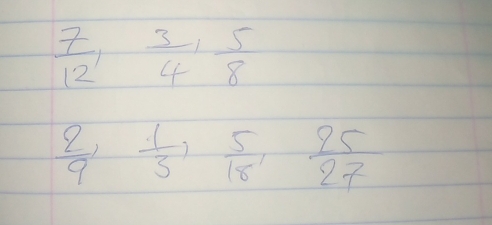 7/12, 3/4, 5/8
2/9, 1/3, 5/18, 25/27